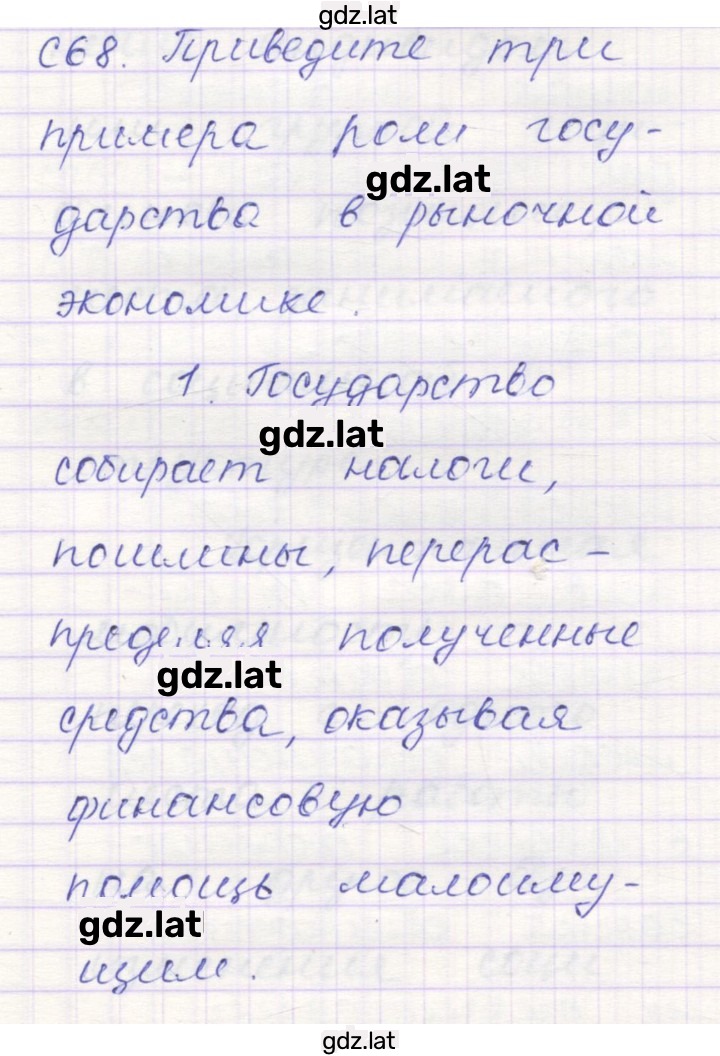 gdz.lat
С68. Приведите три
примера роли госу-
gdz.lat
дарства в рыночной
экономике.
1. Государство
gdz.lat
собирает налоги,
пошлины, перерас-
пределяя полученные
gdz.lat
средства, оказывая
финансовую
помощь малоиму-
gdz.lat
щим.
gdz.lat